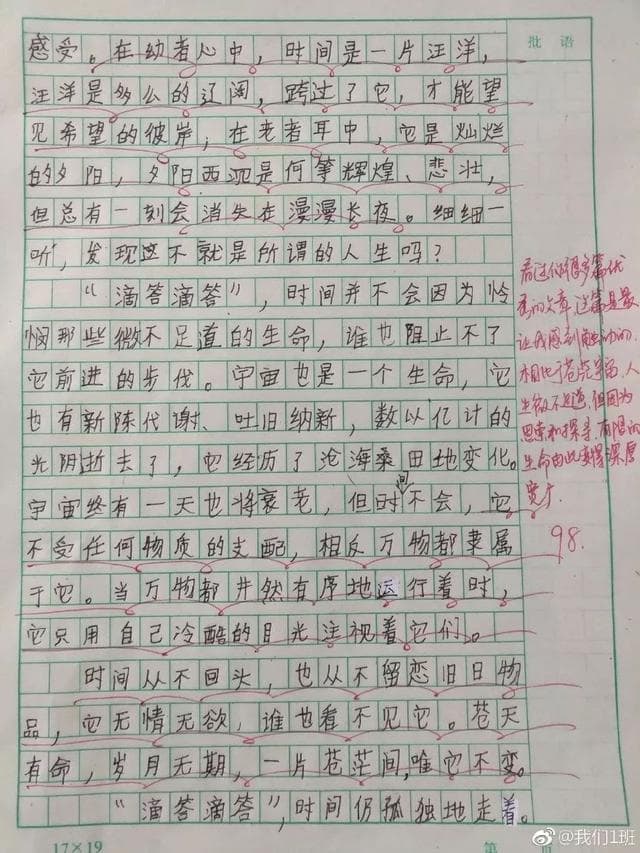 批语
感受。在幼者心中，时间是一片汪洋，
汪洋是多么的辽阔，跨过了它，才能望
见希望的彼岸；在老者耳中，它是灿烂
的夕阳，夕阳西迟是何等辉煌、悲壮，
但总有一刻会消失在漫漫长夜。细细一
听，发现这不就是所谓的人生吗？
“滴答滴答”，时间并不会因为怜
悯那些微不足道的生命，谁也阻止不了
它前进的步伐。宇宙也是一个生命，它
也有新陈代谢、吐旧纳新，数以亿计的
光阴逝去了，它经历了沧海桑田地变化。
宇宙终有一天也将衰老，但时间不会，它
不受任何物质的支配，相反万物都隶属
于它。当万物都井然有序地运行着时，
它只用自己冷酷的目光注视着它们。
时间从不回头，也从不留恋旧日物
品，它无情无欲，谁也看不见它。苍天
有命，岁月无期，一片苍茫间，唯它不变。
“滴答滴答”，时间仍孤独地走着。
看过你很多篇优
秀的文章，这篇是最
让我感到触动的，
相比于苍茫宇宙，人
生微不足道，但因为
思索和探寻，有限的
生命由此变得深厚
宽广
98.
17×19
第 页
@我们1班